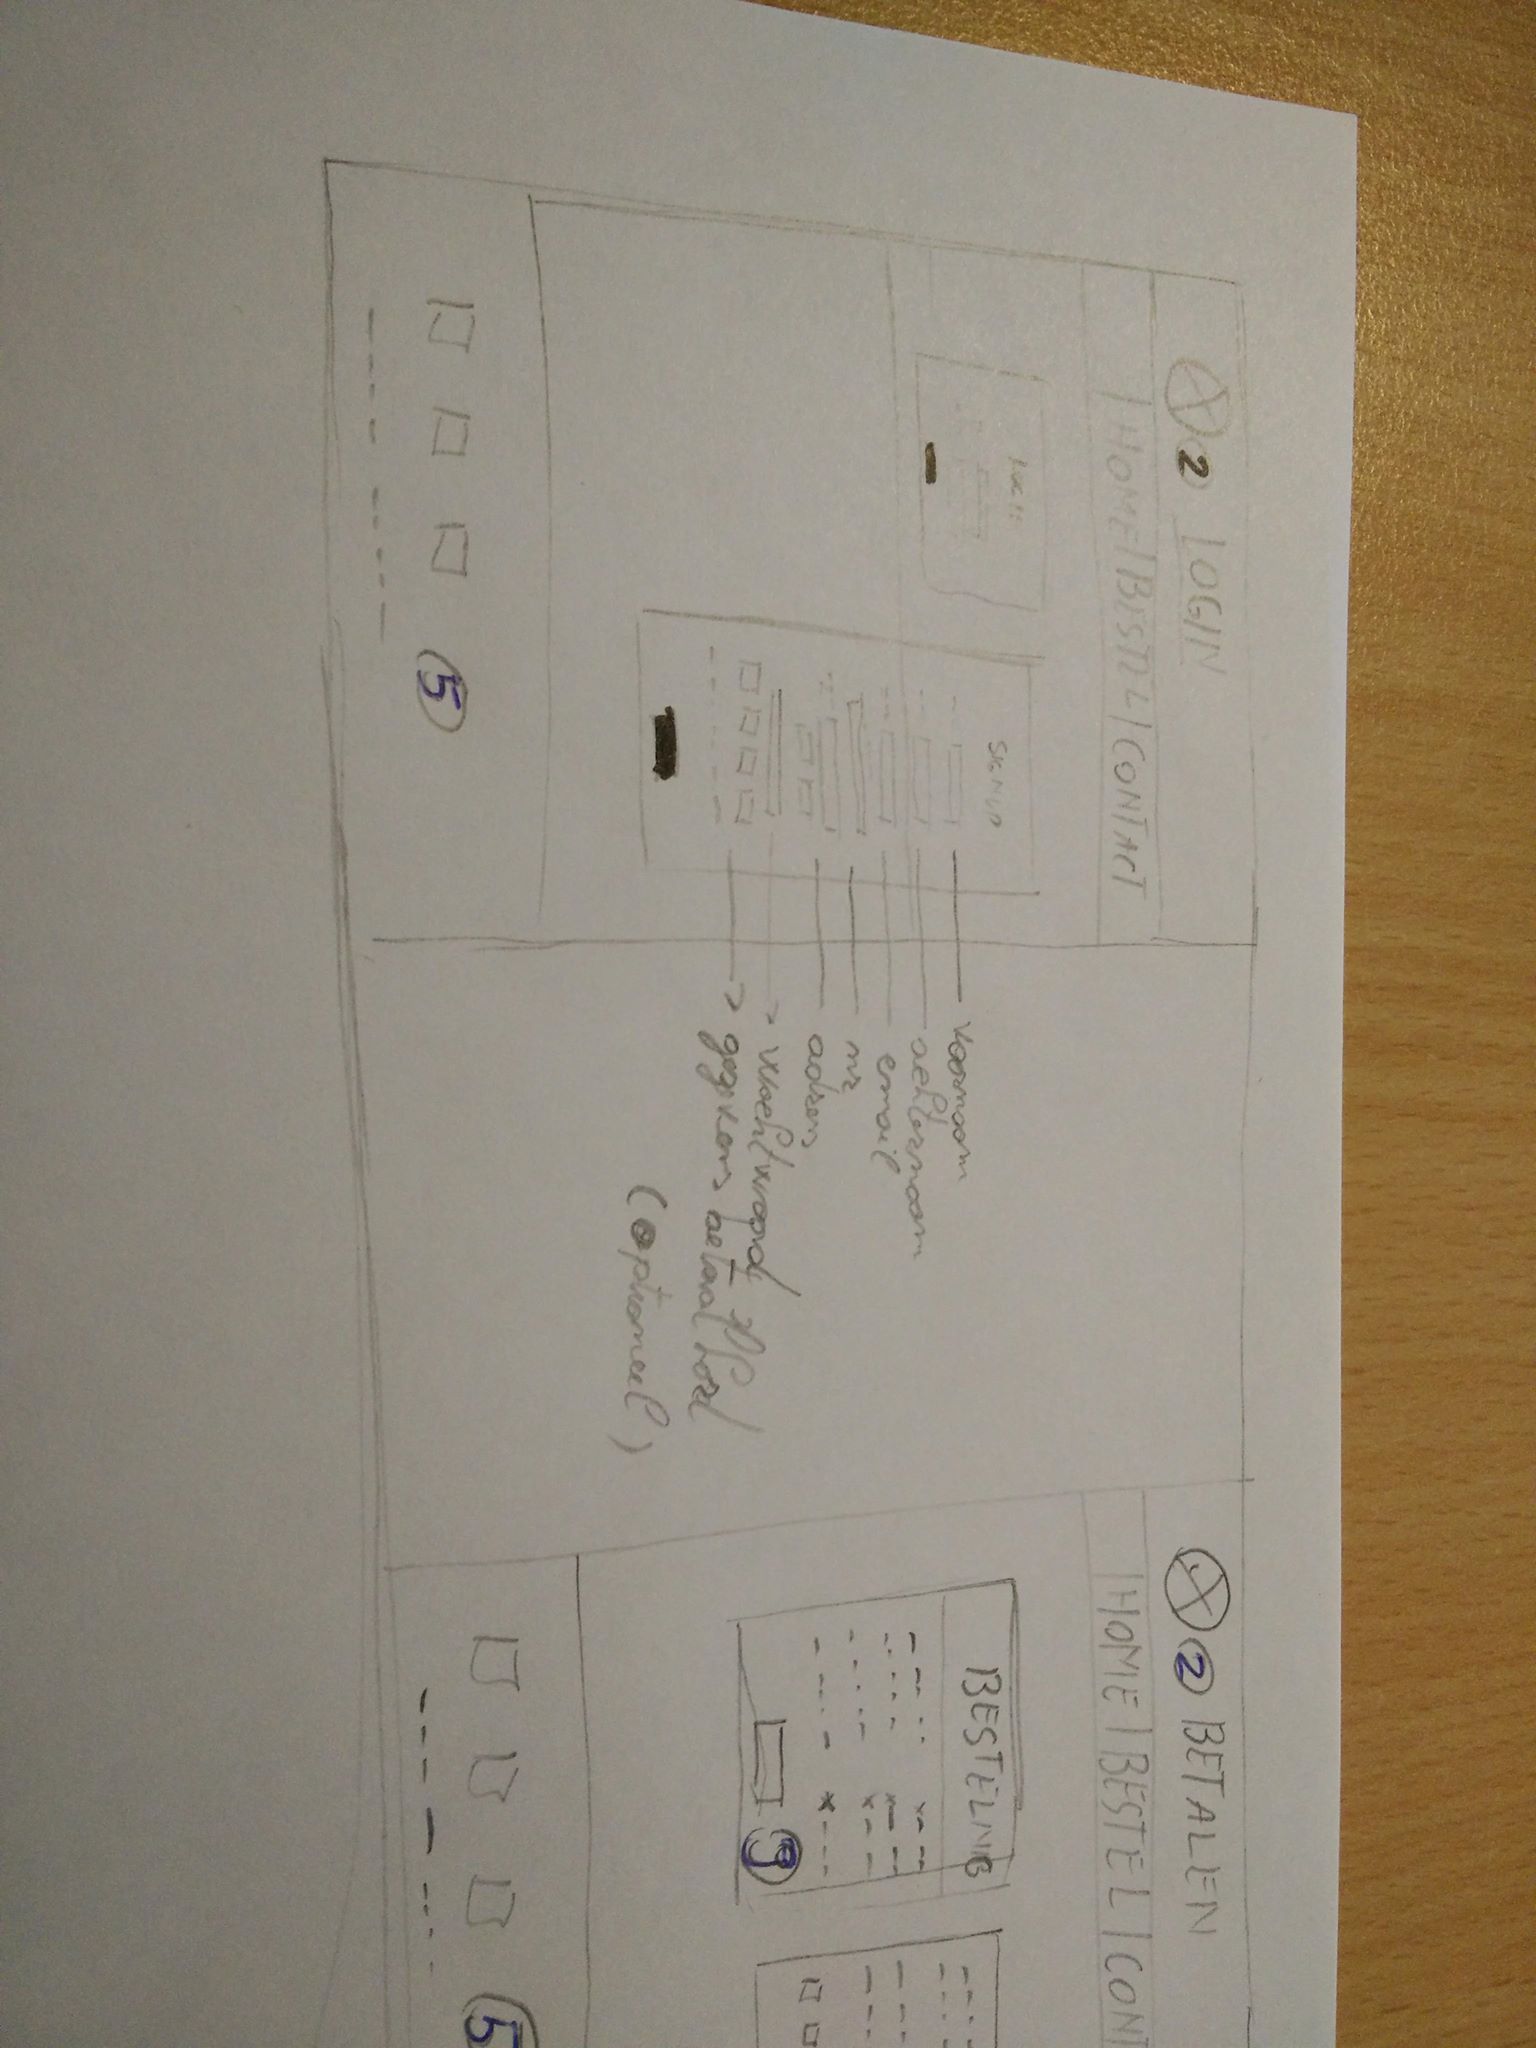 2 LOGIN
| HOME | BESTEL | CONTACT
LOGIN
SIGNUP
voornaam
achternaam
email
nr
adres
wachtwoord
gegevens
(optioneel)
5
2 BETALEN
| HOME | BESTEL | CONT
BESTELING
x
x
x
x
9
5